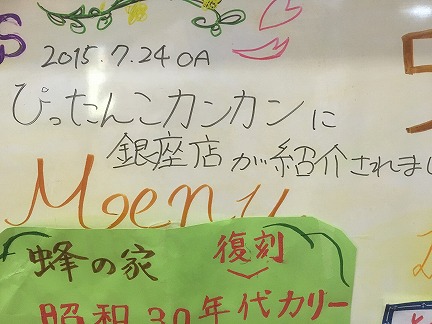 2015.7.24 OA
ぴったんこカンカンに
銀座店が紹介されまし
Moenu
蜂の家
復刻
昭和30年代カリー